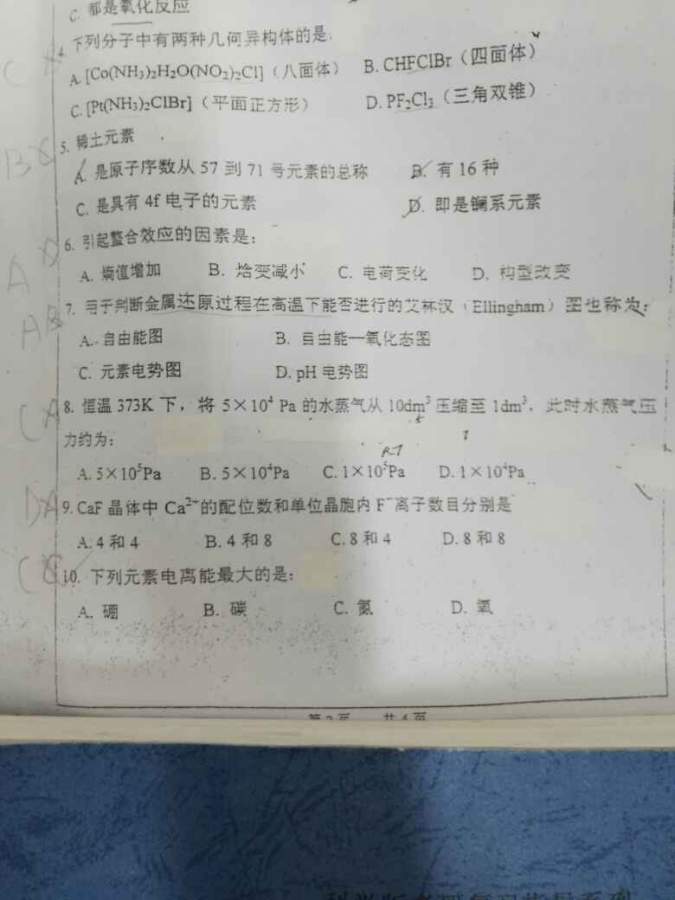 C. 都是氧化反应
4. 下列分子中有两种几何异构体的是:
A. [Co(NH₃)₂H₂O(NO₂)₂Cl]（八面体） B. CHFClBr（四面体）
C. [Pt(NH₃)₂ClBr]（平面正方形） D. PF₂Cl₃（三角双锥）
5. 稀土元素
A. 是原子序数从 57 到 71 号元素的总称 B. 有 16 种
C. 是具有 4f 电子的元素 D. 即是镧系元素
6. 引起螯合效应的因素是:
A. 熵值增加 B. 焓变减小 C. 电荷变化 D. 构型改变
7. 用于判断金属还原过程在高温下能否进行的艾林汉（Ellingham）图也称为:
A. 自由能图 B. 自由能—氧化态图
C. 元素电势图 D. pH 电势图
8. 恒温 373K 下，将 5×10⁴ Pa 的水蒸气从 10dm³ 压缩至 1dm³，此时水蒸气压
力约为:
A. 5×10⁵Pa B. 5×10⁴Pa C. 1×10⁵Pa D. 1×10⁴Pa
9. CaF 晶体中 Ca²⁺的配位数和单位晶胞内 F⁻离子数目分别是
A. 4 和 4 B. 4 和 8 C. 8 和 4 D. 8 和 8
10. 下列元素电离能最大的是:
A. 硼 B. 碳 C. 氮 D. 氧